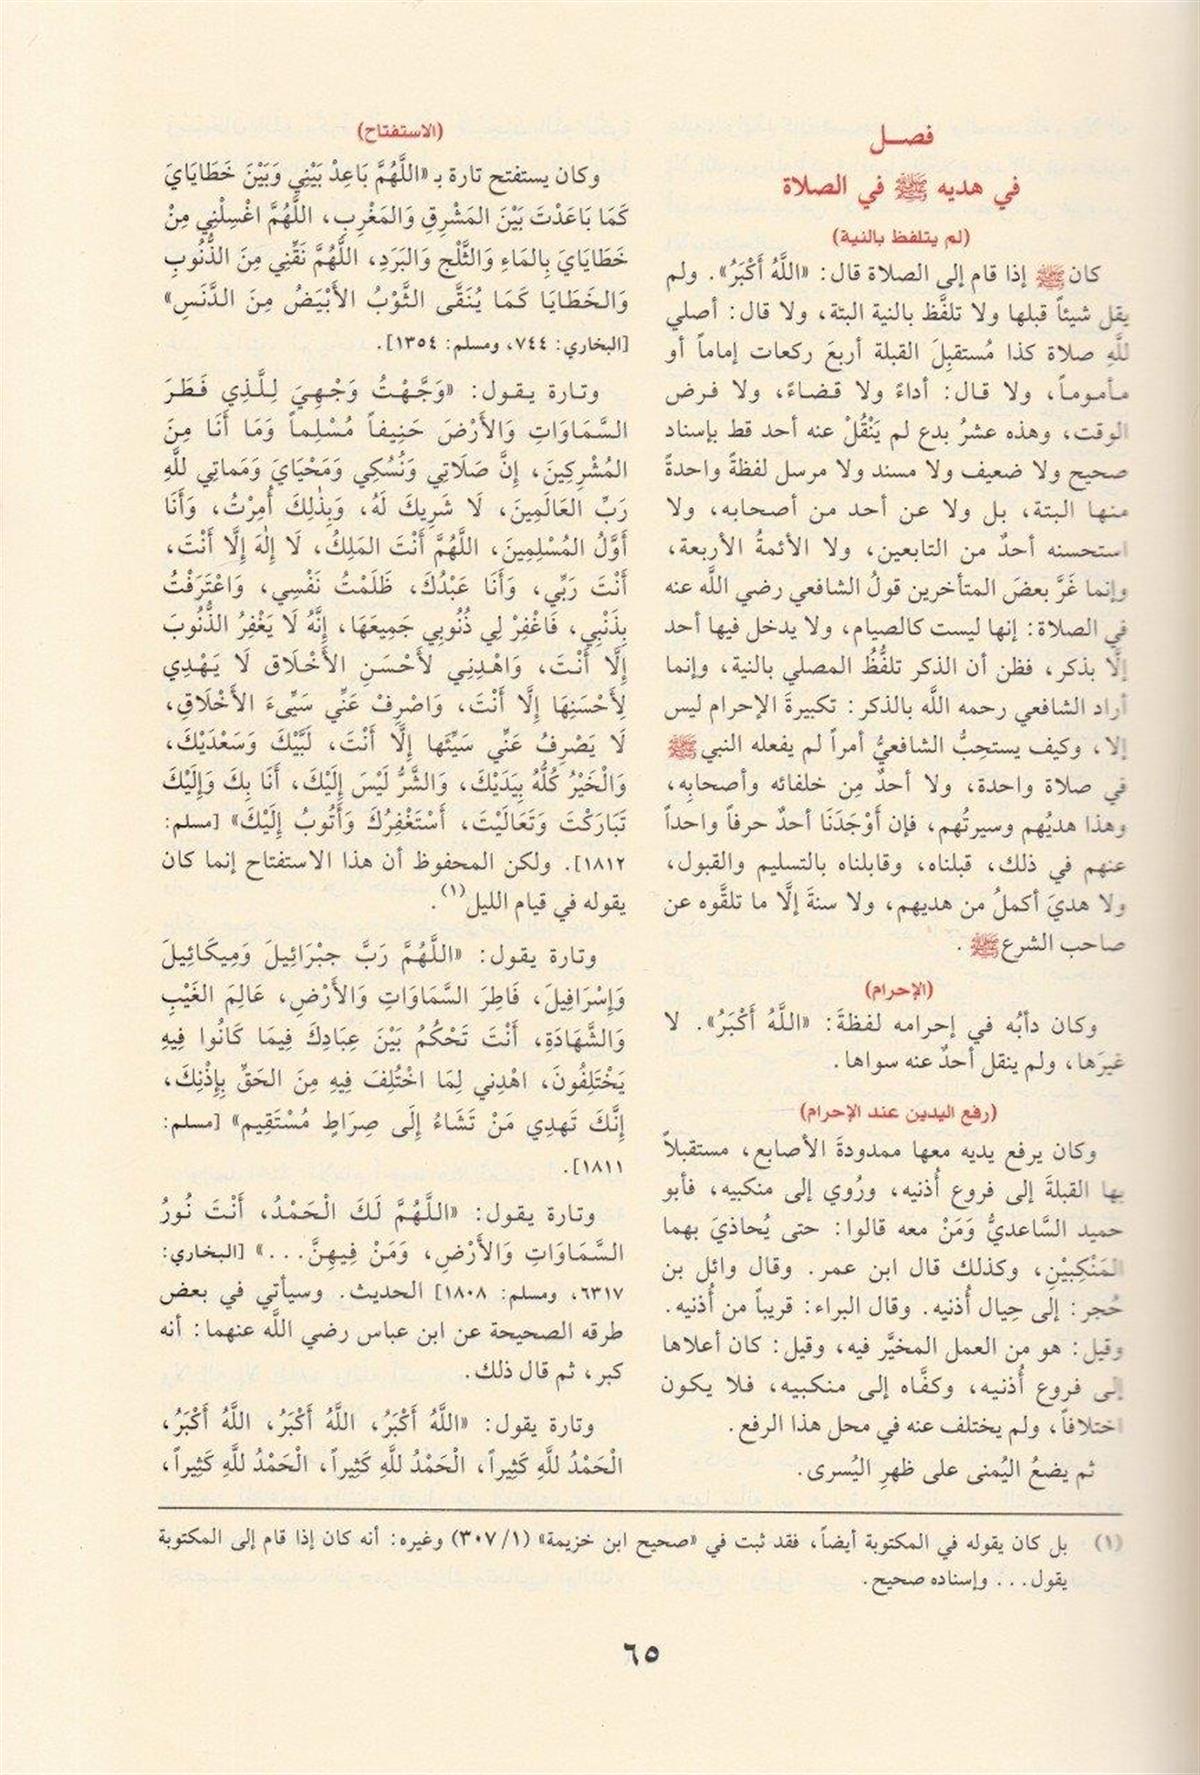 فصـل
في هديه ﷺ في الصلاة
(لم يتلفظ بالنية)
كان ﷺ إذا قام إلى الصلاة قال: «اللَّهُ أَكْبَرُ». ولم
يقل شيئاً قبلها ولا تلفَّظ بالنية البتة، ولا قال: أصلي
للَّهِ صلاة كذا مُستقبِلَ القبلة أربعَ ركعات إماماً أو
مأموماً، ولا قال: أداءً ولا قضاءً، ولا فرض
الوقت، وهذه عشرُ بدع لم يَنْقُلْ عنه أحد قط بإسناد
صحيح ولا ضعيف ولا مسند ولا مرسل لفظةً واحدةً
منها البتة، بل ولا عن أحد من أصحابه، ولا
استحسنه أحدٌ من التابعين، ولا الأئمةُ الأربعة،
وإنما غَرَّ بعضَ المتأخرين قولُ الشافعي رضي اللَّه عنه
في الصلاة: إنها ليست كالصيام، ولا يدخل فيها أحد
إلَّا بذكر، فظن أن الذكر تلفُّظُ المصلي بالنية، وإنما
أراد الشافعي رحمه اللَّه بالذكر: تكبيرةَ الإحرام ليس
إلا، وكيف يستحِبُّ الشافعيُّ أمراً لم يفعله النبي ﷺ
في صلاة واحدة، ولا أحدٌ مِن خلفائه وأصحابِه،
وهذا هديُهم وسيرتُهم، فإن أَوْجَدَنَا أحدٌ حرفاً واحداً
عنهم في ذلك، قبلناه، وقابلناه بالتسليم والقبول،
ولا هديَ أكملُ من هديهم، ولا سنةَ إلَّا ما تلقَّوه عن
صاحب الشرع ﷺ.
(الإحرام)
وكان دأبُه في إحرامه لفظةَ: «اللَّهُ أَكْبَرُ». لا
غيرَها، ولم ينقل أحدٌ عنه سواها.
(رفع اليدين عند الإحرام)
وكان يرفع يديه معها ممدودةَ الأصابع، مستقبلاً
بها القبلةَ إلى فروع أُذنيه، ورُوي إلى منكبيه، فأبو
حميد السَّاعديُّ وَمَنْ معه قالوا: حتى يُحاذيَ بهما
المَنْكِبيْنِ، وكذلك قال ابن عمر. وقال وائل بن
حُجر: إلى حِيال أُذنيه. وقال البراء: قريباً من أُذنيه.
وقيل: هو من العمل المخيَّر فيه، وقيل: كان أعلاها
إلى فروع أُذنيه، وكفَّاه إلى منكبيه، فلا يكون
اختلافاً، ولم يختلف عنه في محل هذا الرفع.
ثم يضعُ اليُمنى على ظهرِ اليُسرى.
(الاستفتاح)
وكان يستفتح تارة بـ «اللَّهُمَّ بَاعِدْ بَيْنِي وَبَيْنَ خَطَايَايَ
كَمَا بَاعَدْتَ بَيْنَ المَشْرِقِ وَالمَغْرِبِ، اللَّهُمَّ اغْسِلْنِي مِنْ
خَطَايَايَ بِالمَاءِ وَالثَّلْجِ وَالبَرَدِ، اللَّهُمَّ نَقِّنِي مِنَ الذُّنُوبِ
وَالخَطَايَا كَمَا يُنَقَّى الثَّوْبُ الأَبْيَضُ مِنَ الدَّنَسِ»
[البخاري: ٧٤٤، ومسلم: ١٣٥٤].
وتارة يقول: «وَجَّهْتُ وَجْهِيَ لِلَّذِي فَطَرَ
السَّمَاوَاتِ وَالأَرْضَ حَنِيفاً مُسْلِماً وَمَا أَنَا مِنَ
المُشْرِكِينَ، إِنَّ صَلَاتِي وَنُسُكِي وَمَحْيَايَ وَمَماتِي للَّهِ
رَبِّ العَالَمِينَ، لَا شَرِيكَ لَهُ، وَبِذٰلِكَ أُمِرْتُ، وَأَنَا
أَوَّلُ المُسْلِمِينَ، اللَّهُمَّ أَنْتَ المَلِكُ، لَا إِلٰهَ إِلَّا أَنْتَ،
أَنْتَ رَبِّي، وَأَنَا عَبْدُكَ، ظَلَمْتُ نَفْسِي، وَاعْتَرَفْتُ
بِذَنْبِي، فَاغْفِرْ لِي ذُنُوبِي جَمِيعَهَا، إِنَّهُ لَا يَغْفِرُ الذُّنُوبَ
إِلَّا أَنْتَ، وَاهْدِنِي لأَحْسَنِ الأَخْلَاق لَا يَهْدِي
لِأَحْسَنِهَا إِلَّا أَنْتَ، وَاصْرِفْ عَنِّي سَيِّىءَ الأَخْلَاقِ،
لَا يَصْرِفُ عَنِّي سَيِّئَها إِلَّا أَنْتَ، لَبَّيْكَ وَسَعْدَيْكَ،
وَالْخَيْرُ كُلُّهُ بِيَدَيْكَ، وَالشَّرُّ لَيْسَ إِلَيْكَ، أَنَا بِكَ وَإِلَيْكَ
تَبَارَكْتَ وَتَعَالَيْتَ، أَسْتَغْفِرُكَ وَأَتُوبُ إِلَيْكَ» [مسلم:
١٨١٢]. ولكن المحفوظ أن هذا الاستفتاح إنما كان
يقوله في قيام الليل(١).
وتارة يقول: «اللَّهُمَّ رَبَّ جبْرَائِيلَ وَمِيكَائِيلَ
وَإِسْرَافِيلَ، فَاطِرَ السَّمَاوَاتِ وَالأَرْضِ، عَالِمَ الغَيْبِ
وَالشَّهَادَةِ، أَنْتَ تَحْكُمُ بَيْنَ عِبَادِكَ فِيمَا كَانُوا فِيهِ
يَخْتَلِفُونَ، اهْدِني لِمَا اخْتُلِفَ فِيهِ مِنَ الحَقِّ بِإِذْنِكَ،
إِنَّكَ تَهدِي مَنْ تَشَاءُ إِلَى صِرَاطٍ مُسْتَقِيم» [مسلم:
١٨١١].
وتارة يقول: «اللَّهُمَّ لَكَ الْحَمْدُ، أَنْتَ نُورُ
السَّمَاوَاتِ وَالأَرْضِ، وَمَنْ فِيهِنَّ...» [البخاري:
٦٣١٧، ومسلم: ١٨٠٨] الحديث. وسيأتي في بعض
طرقه الصحيحة عن ابن عباس رضي اللَّه عنهما: أنه
كبر، ثم قال ذلك.
وتارة يقول: «اللَّهُ أَكْبَرُ، اللَّهُ أَكْبَرُ، اللَّهُ أَكْبَرُ،
الْحَمْدُ للَّهِ كَثِيراً، الْحَمْدُ للَّهِ كَثِيراً، الْحَمْدُ للَّهِ كَثِيراً،
(١) بل كان يقوله في المكتوبة أيضاً، فقد ثبت في «صحيح ابن خزيمة» (١/ ٣٠٧) وغيره: أنه كان إذا قام إلى المكتوبة
يقول... وإسناده صحيح.
٦٥